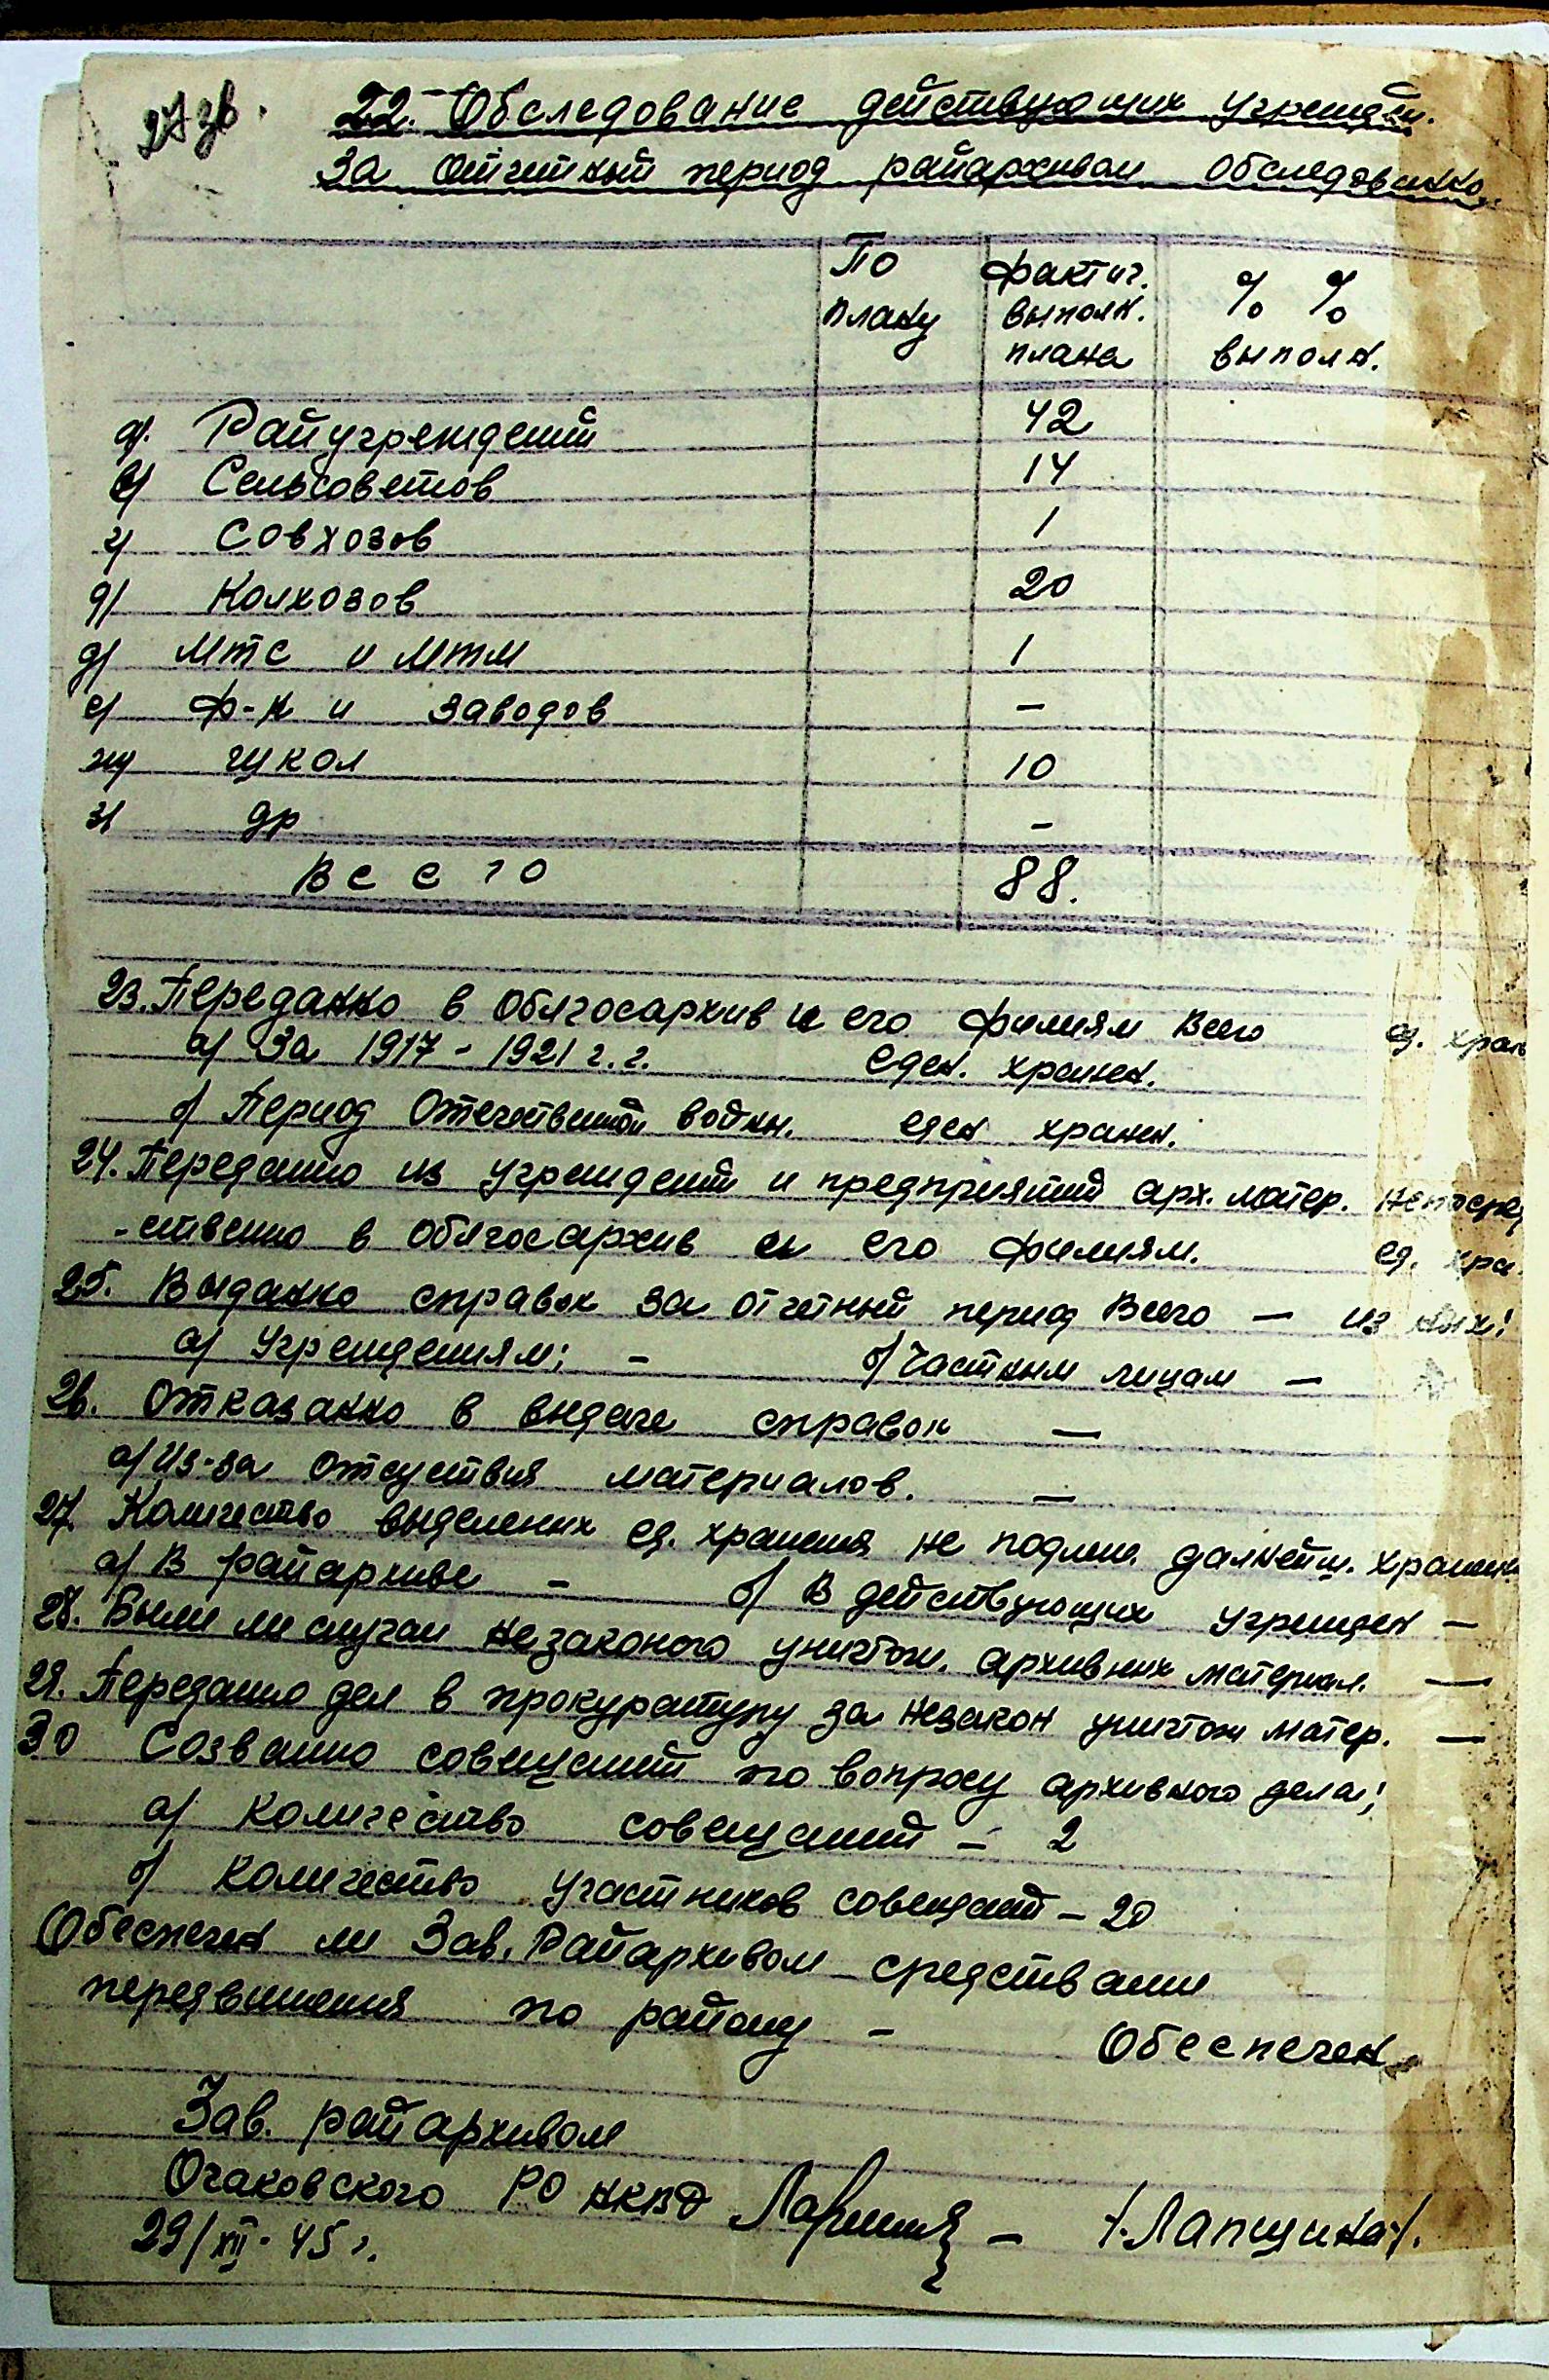 27 зв.
22. Обследование действующих учрежден.
За отчетный период райархивом обследованно.
По плану
фактич. выполн. плана
% % выполн.
а/. Райучреждений 42
в/ Сельсоветов 14
г/ Совхозов 1
д/ Колхозов 20
д/ МТС и МТМ 1
е/ Ф-к и заводов –
ж/ школ 10
з/ др –
Всего 88.
23. Переданно в Облгосархив и его филиям Всего ед. хран
а/ За 1917 - 1921 г.г. еден. хранен.
б/ Период Отечественной войны. еден хранен.
24. Переданно из учреждений и предприятий арх. матер. непосред
-ственно в облгосархив и его филиям. ед. хра.
25. Выданно справок за отчетный период Всего — из них:
а/ Учреждениям; – б/ Частным лицам —
26. Отказанно в выдаче справок —
а/ Из-за отсуствия материалов. —
27. Количество выделеных ед. хранения не подлеж. далнейш. хранен
а/ В райархиве – б/ В действующих учрежден —
28. Были ли случаи незаконого уничтож. архивних материал. —
29. Переданно дел в прокуратуру за незакон уничтож матер. —
30 Созванно совещаний по вопросу архивного дела;
а/ Количество совещаний – 2
б/ Количество участников совещаний – 20
Обеспечен ли Зав. Райархивом средствами
передвижения по району – Обеспечен.
Зав. райархивом
Очаковского РО НКВД – /.Лапшина./.
29/XII. 45 г.